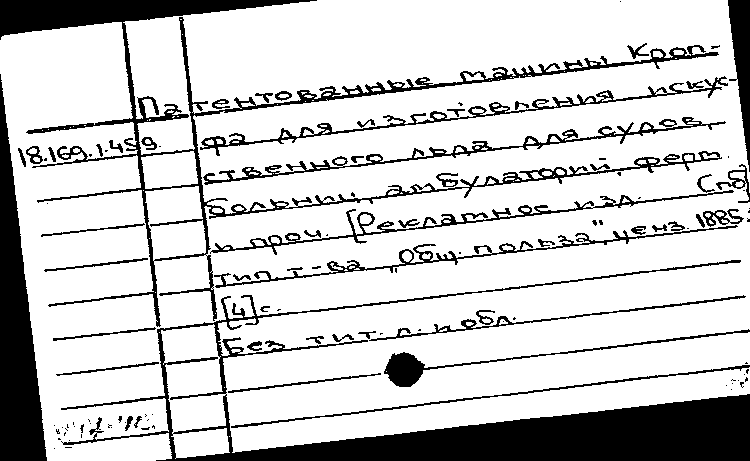 Патентованные машины Кроп-
18.169.1.459 фа для изготовления искус-
ственного льда для судов,
больниц, амбулаторий, ферм
и проч. [Рекламное изд. Спб]
тип. т-ва „Общ. польза", ценз. 1885.
[4] с.
Без тит. л. и обл.